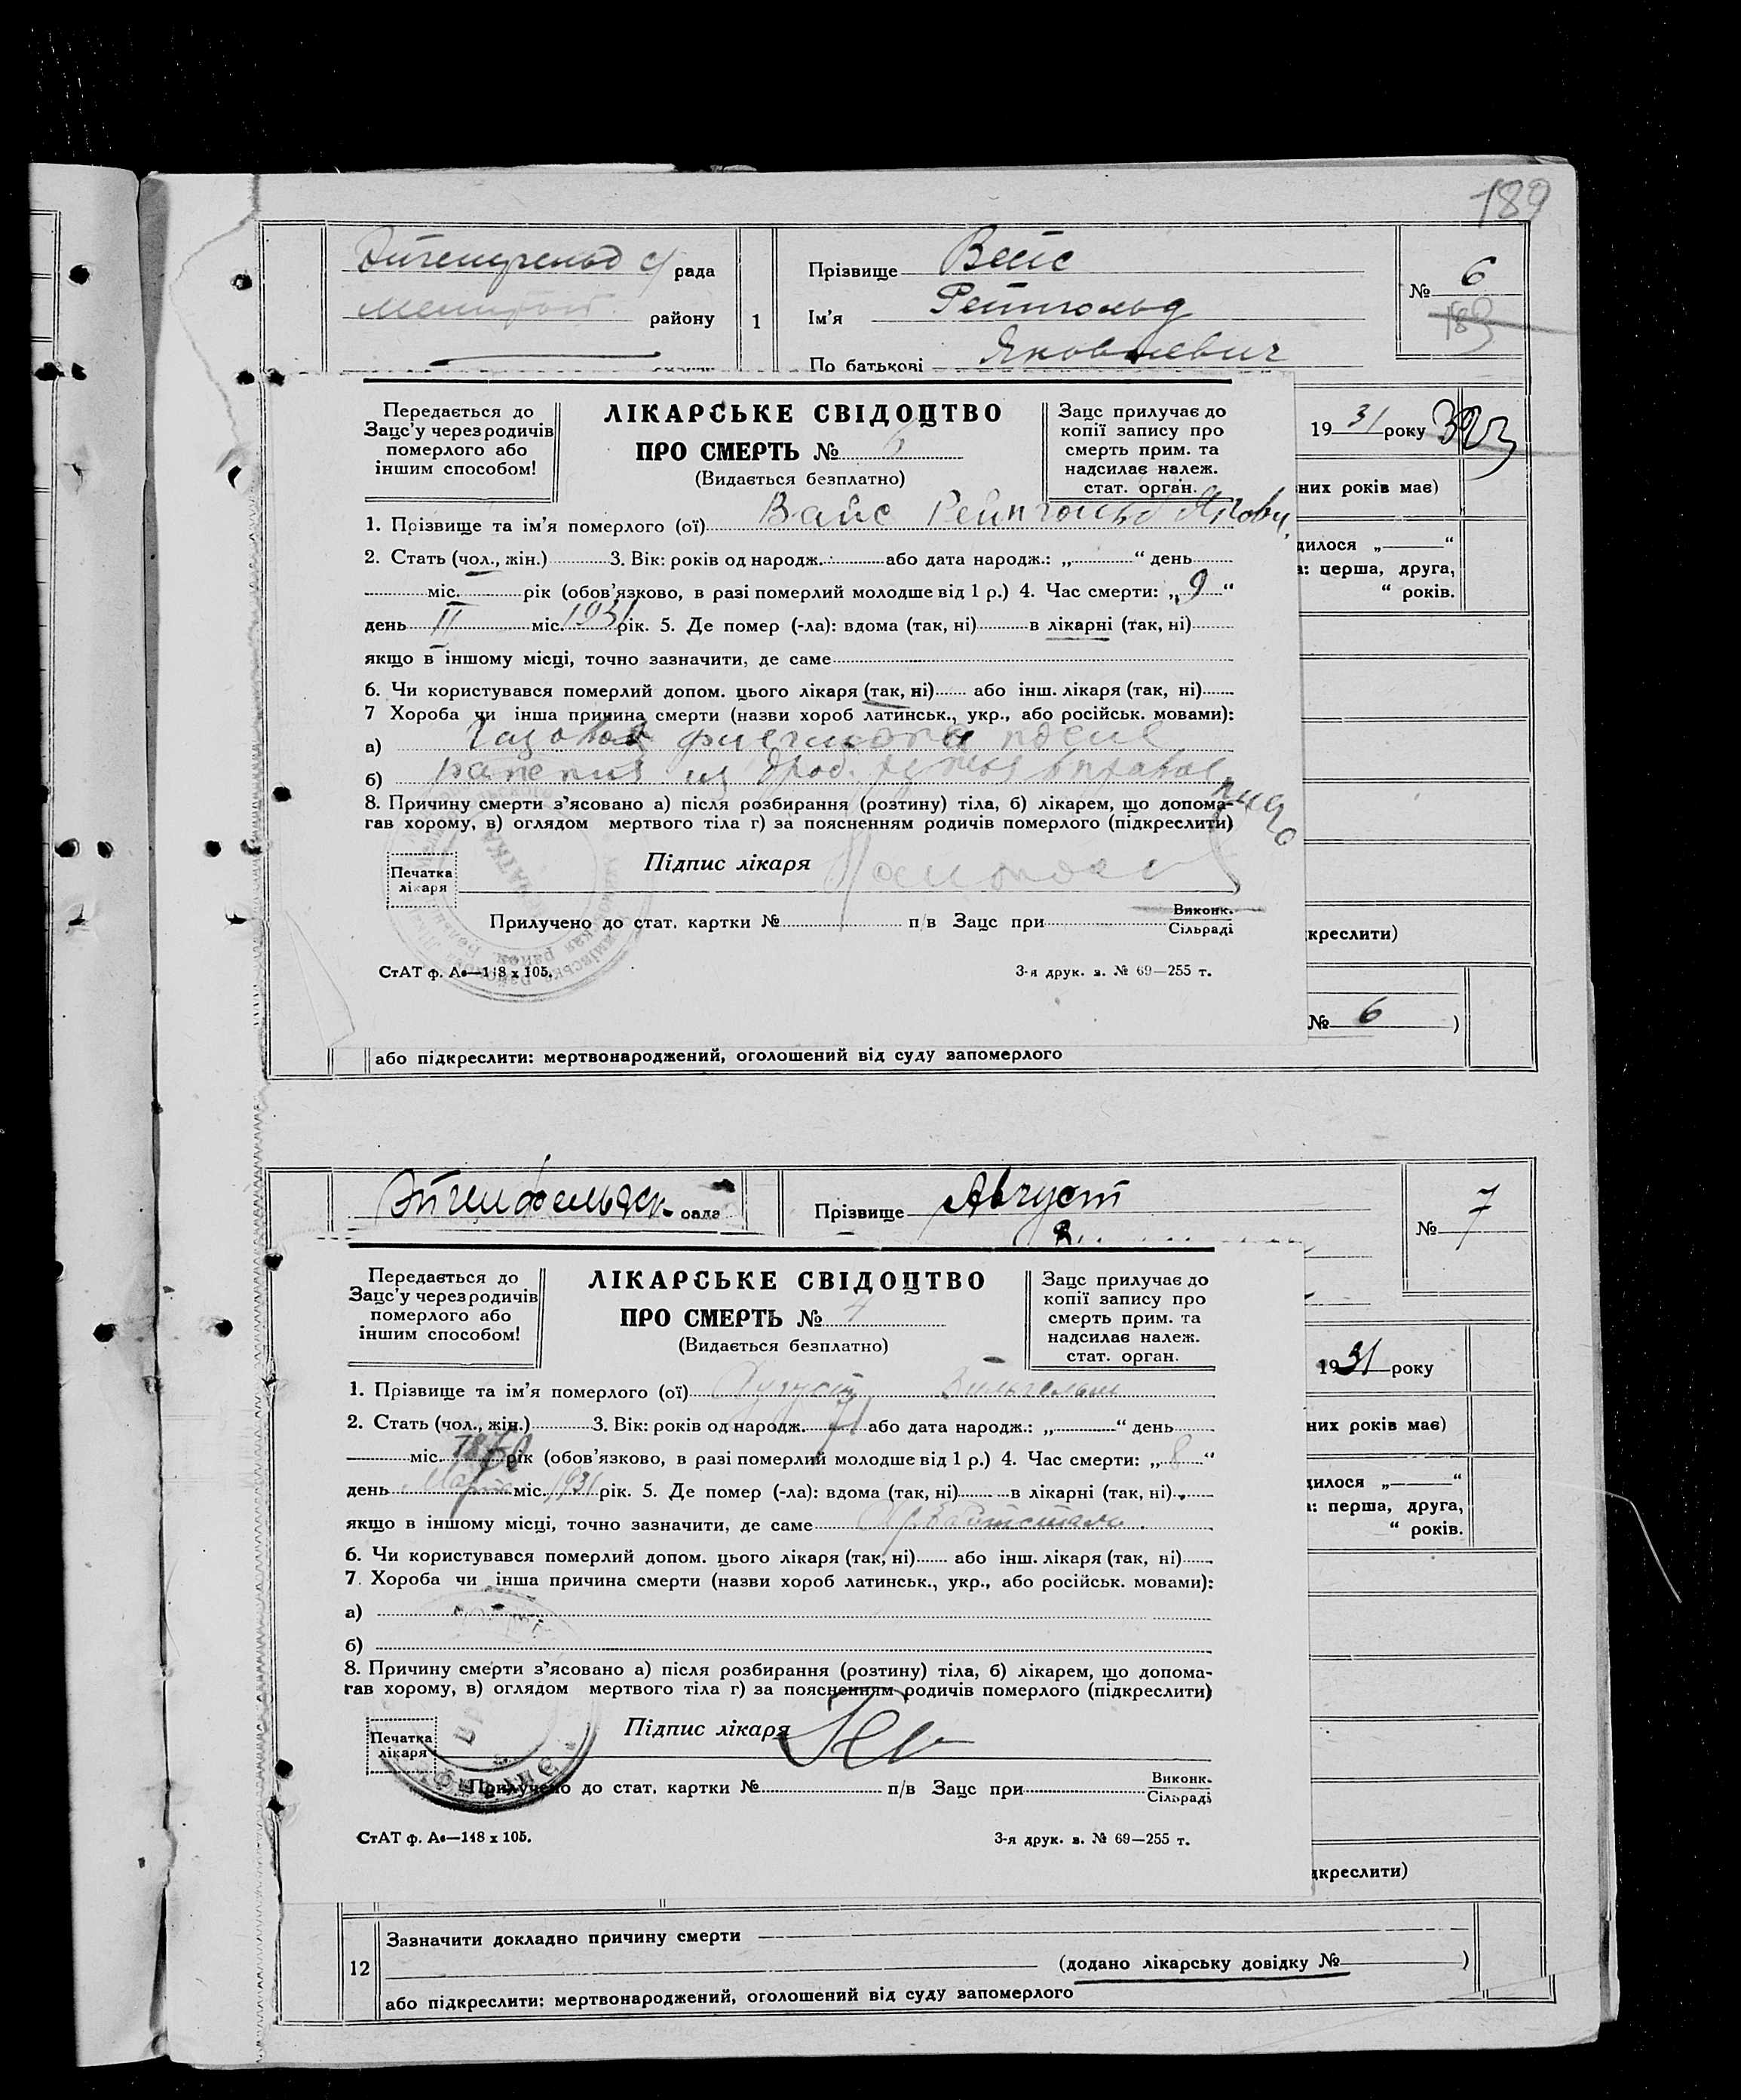 189
рада
району
1
Прізвище Вейс
Ім'я Рейнгольд
По батькові Яковлевич
№ 6
189
Передається до
Зацс'у через родичів
померлого або
іншим способом!
ЛІКАРСЬКЕ СВІДОЦТВО
ПРО СМЕРТЬ № 6
(Видається безплатно)
Зацс прилучає до
копії запису про
смерть прим. та
надсилає належ.
стат. орган.
19 31 року
них років має)
1. Прізвище та ім'я померлого (ої) Вайс Рейнгольд Якови
2. Стать (чол., жін.) 3. Вік: років од народж. або дата народж.: „ “ день
дилося „ “
: перша, друга,
“ років.
міс. рік (обов'язково, в разі померлий молодше від 1 р.) 4. Час смерти: „ 9 “
день II міс. 1931 рік. 5. Де помер (-ла): вдома (так, ні) в лікарні (так, ні)
якщо в іншому місці, точно зазначити, де саме
6. Чи користувався померлий допом. цього лікаря (так, ні) або інш. лікаря (так, ні)
7 Хороба чи інша причина смерти (назви хороб латинськ., укр., або російськ. мовами):
а) Газовая флегмона после
б) ранения из дроб.
8. Причину смерти з'ясовано а) після розбирання (розтину) тіла, б) лікарем, що допома-
гав хорому, в) оглядом мертвого тіла г) за поясненням родичів померлого (підкреслити)
Печатка
лікаря
Підпис лікаря
Прилучено до стат. картки № п/в Зацс при Виконк.
Сільраді
креслити)
СтАТ ф. А•—148 х 105.
3-я друк. з. № 69—255 т.
№ 6 )
або підкреслити: мертвонароджений, оголошений від суду запомерлого
рада
Прізвище Август
№ 7
Передається до
Зацс'у через родичів
померлого або
іншим способом!
ЛІКАРСЬКЕ СВІДОЦТВО
ПРО СМЕРТЬ № 7
(Видається безплатно)
Зацс прилучає до
копії запису про
смерть прим. та
надсилає належ.
стат. орган.
19 31 року
них років має)
1. Прізвище та ім'я померлого (ої) Вильгельм
2. Стать (чол., жін.) 3. Вік: років од народж. 71 або дата народж.: „ “ день
дилося „ “
: перша, друга,
“ років.
міс. рік (обов'язково, в разі померлий молодше від 1 р.) 4. Час смерти: „ 8 “
день Марта міс. 1931 рік. 5. Де помер (-ла): вдома (так, ні) в лікарні (так, ні)
якщо в іншому місці, точно зазначити, де саме
6. Чи користувався померлий допом. цього лікаря (так, ні) або інш. лікаря (так, ні)
7. Хороба чи інша причина смерти (назви хороб латинськ., укр., або російськ. мовами):
а)
б)
8. Причину смерти з'ясовано а) після розбирання (розтину) тіла, б) лікарем, що допома-
гав хорому, в) оглядом мертвого тіла г) за поясненням родичів померлого (підкреслити)
Печатка
лікаря
Підпис лікаря
Прилучено до стат. картки № п/в Зацс при Виконк.
Сільраді
СтАТ ф. А•—148 х 105.
3-я друк. з. № 69—255 т.
дкреслити)
12
Зазначити докладно причину смерти
(додано лікарську довідку № )
або підкреслити: мертвонароджений, оголошений від суду запомерлого